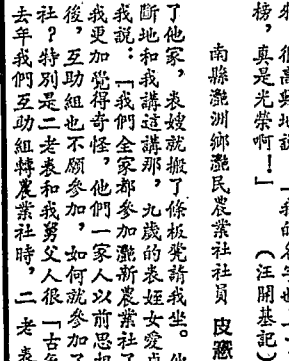 很高興地說：「我的名字也上了
榜，真是光榮啊！」（汪開基記）
南縣㴩洲鄉㴩民農業社社員
了他家，表嫂就搬了條板凳請我坐。
斷地和我講這講那，九歲的表姪女愛貞
我說：「我們全家都參加㴩新農業社了
我更加覺得奇怪，他們一家人以前思想
後，互助組也不願參加，如何就參加了
社？特別是二老表和我舅父人很「古
去年我們互助組轉農業社時，二老表